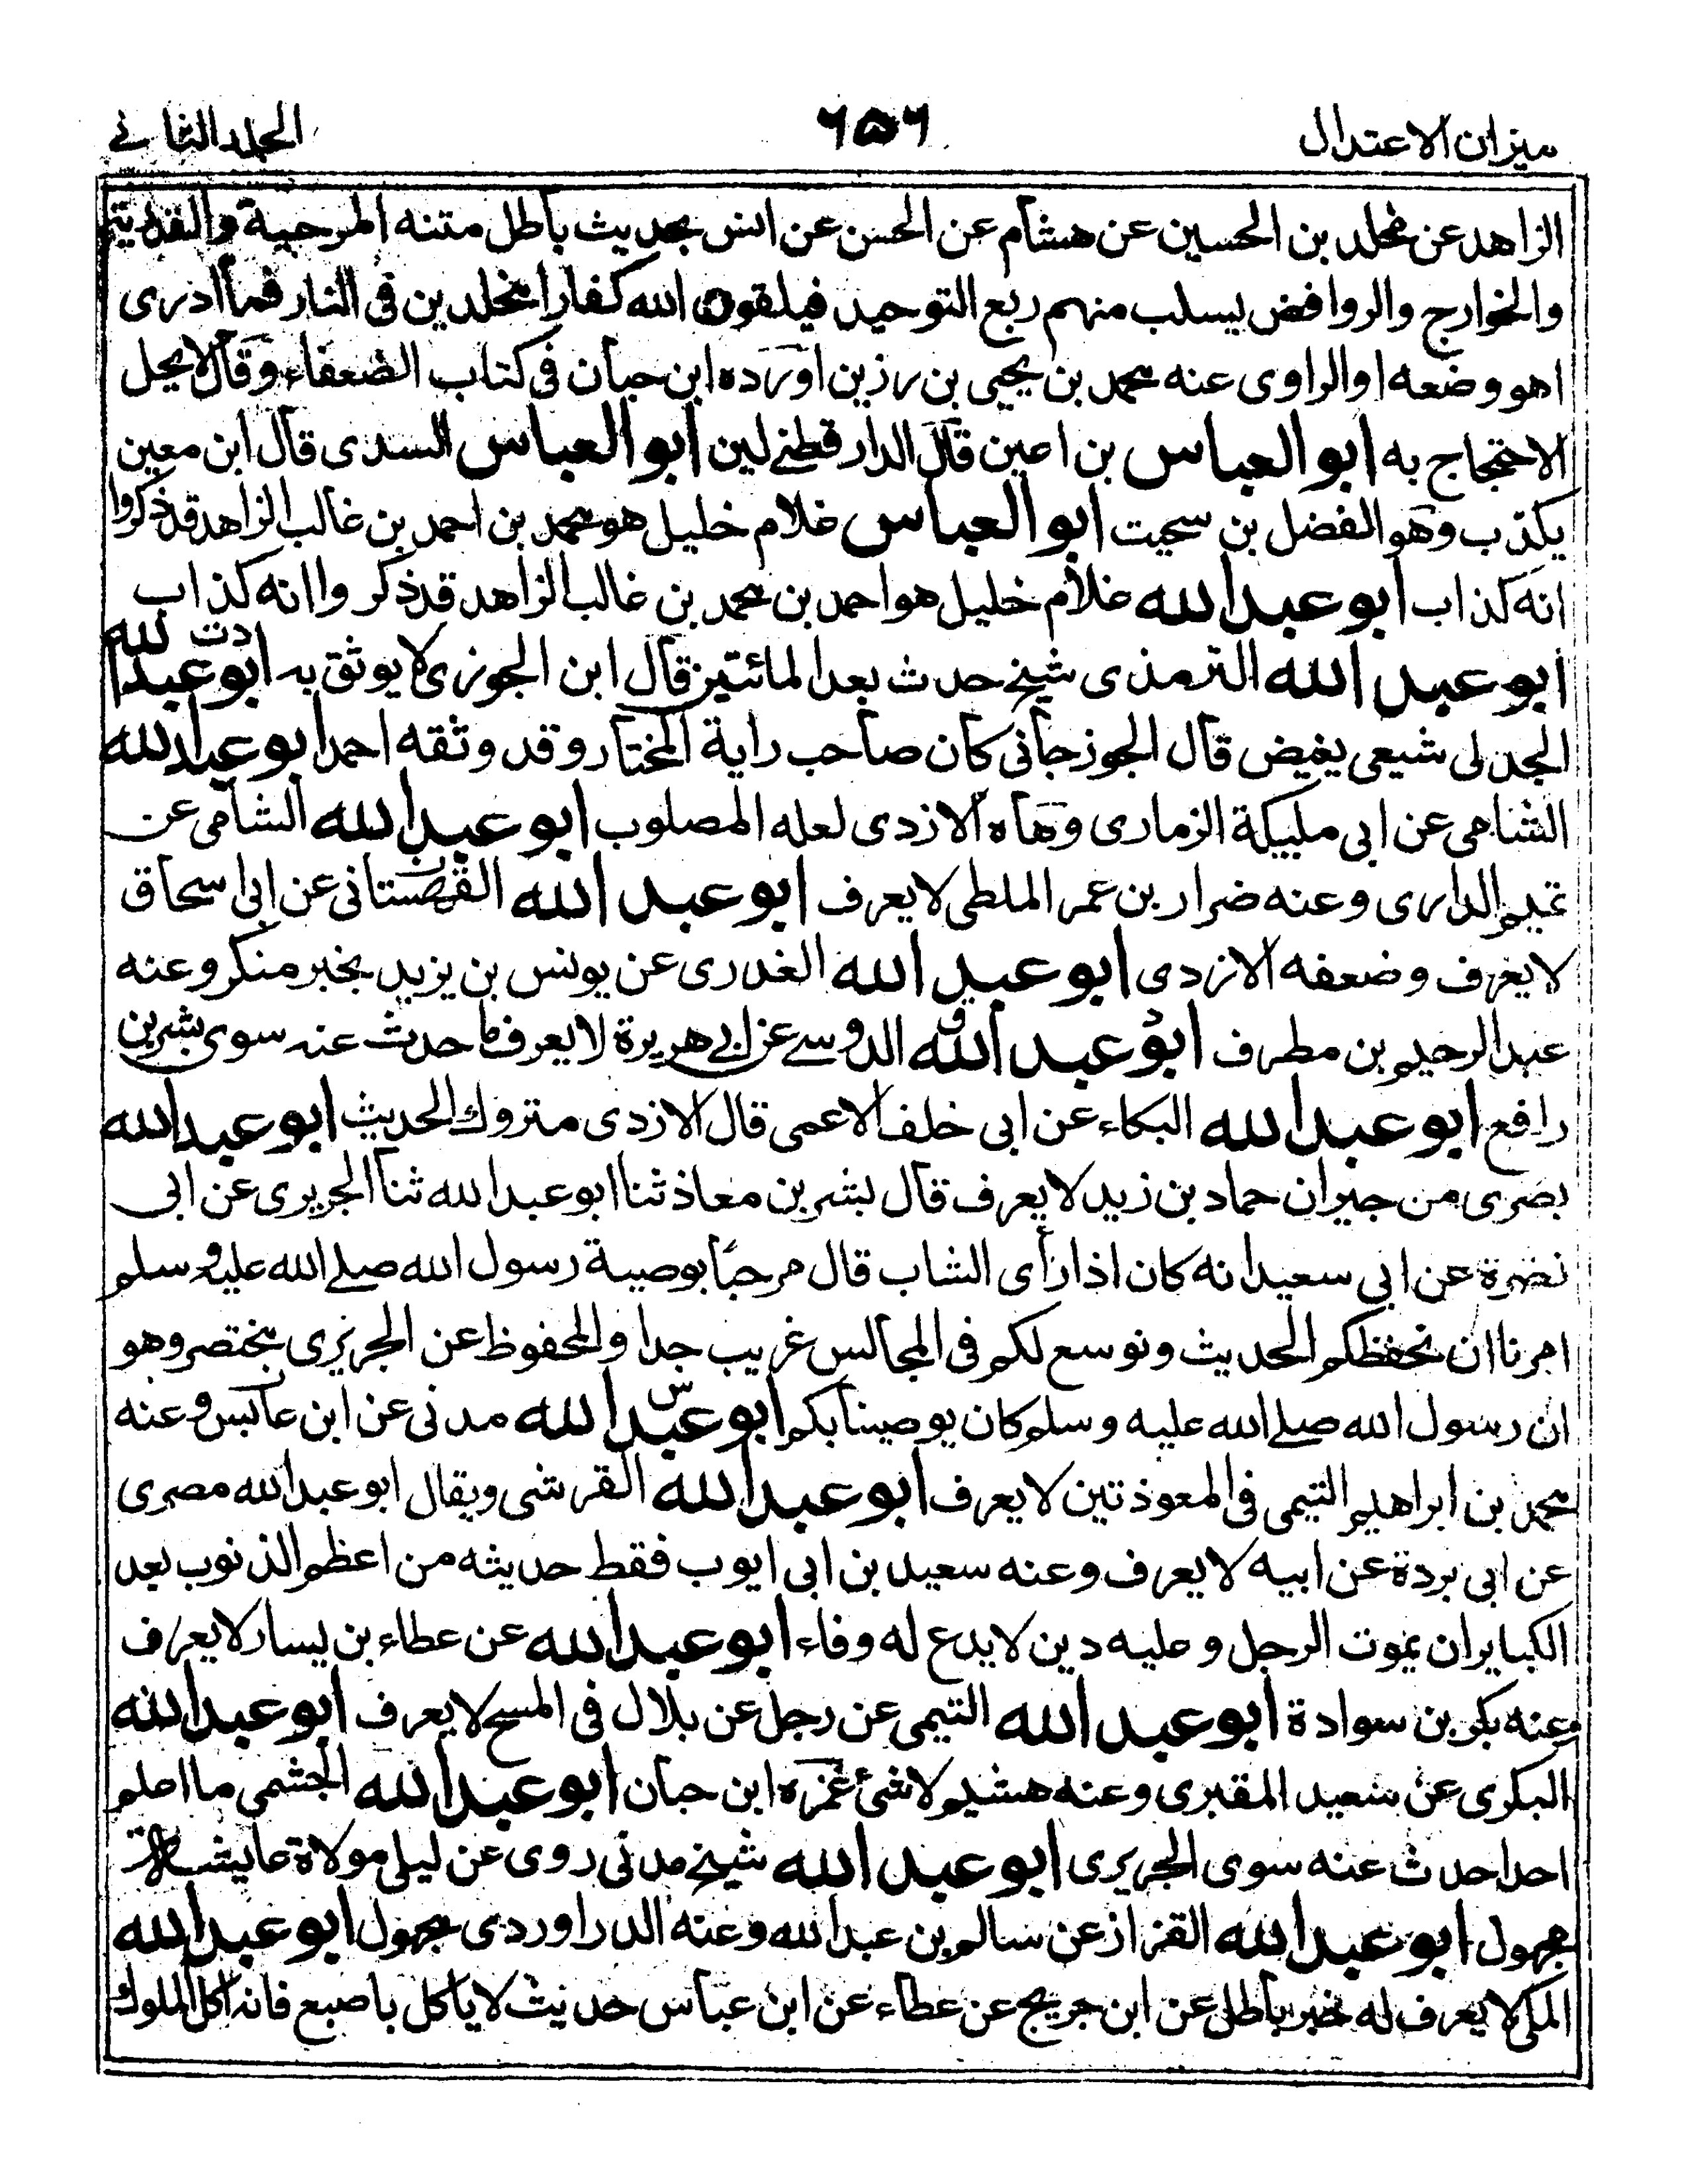 ميزان الاعتدال ٦٥٦ الجلد الثاني
الزاهد عن مخلد بن الحسين عن هشام عن الحسن عن انس بحديث باطل متنه المرجية والقدرية
والخوارج والروافض يسلب منهم ربع التوحيد فيلقون الله كفارا مخلدين في النار فما ادرى
اهو وضعه او الراوى عنه محمد بن يحيى بن رزين اورده ابن حبان في كتاب الضعفاء وقال لا يحل
الاحتجاج به ابو العباس بن اعين قال الدارقطني لين ابو العباس السدى قال ابن معين
يكذب وهو الفضل بن سحيت ابو العباس غلام خليل هو محمد بن احمد بن غالب الزاهد قد ذكروا
انه كذاب ابو عبد الله غلام خليل هو احمد بن محمد بن غالب الزاهد قد ذكر وا انه كذاب
ابو عبد الله الترمذى شيخ حدث بعد المائتين قال ابن الجوزى لا يوثق به ابو عبد الله دت
الجدلى شيعى بغيض قال الجوزجانى كان صاحب راية المختار وقد وثقه احمد ابو عبد الله
الشامى عن ابى مليكة الزمارى وهاه الازدى لعله المصلوب ابو عبد الله الشامى عن
تميم الدارى وعنه ضرار بن عمر الملطى لا يعرف ابو عبد الله القهستانى عن ابى اسحاق
لا يعرف وضعفه الازدى ابو عبد الله الغدرى عن يونس بن يزيد بخبر منكر وعنه
عبد الرحيم بن مطرف ابو عبد الله د ق الدوسے عن ابے هريرة لا يعرف ما حدث عنه سوى بشر بن
رافع ابو عبد الله البكاء عن ابى خلف الاعمى قال الازدى متروك الحديث ابو عبد الله
بصرى من جيران حماد بن زيد لا يعرف قال بشر بن معاذ ثنا ابو عبد الله ثنا الجريرى عن ابى
نضرة عن ابى سعيد انه كان اذا رأى الشاب قال مرحبًا بوصية رسول الله صلے الله عليه وسلم
امرنا ان نحفظكم الحديث ونوسع لكم في المجالس غريب جدا والمحفوظ عن الجريرى مختصر وهو
ان رسول الله صلے الله عليه وسلم كان يوصينا بكم ابو عبد الله س مدنى عن ابن عابس وعنه
محمد بن ابراهيم التيمى في المعوذتين لا يعرف ابو عبد الله القرشى ويقال ابو عبد الله مصرى
عن ابى بردة عن ابيه لا يعرف وعنه سعيد بن ابى ايوب فقط حديثه من اعظم الذنوب بعد
الكباير ان يموت الرجل وعليه دين لا يدع له وفاء ابو عبد الله عن عطاء بن يسار لا يعرف
وعنه بكر بن سوادة ابو عبد الله التيمى عن رجل عن بلال في المسح لا يعرف ابو عبد الله
البكرى عن سعيد المقبرى وعنه هشيم لا شئ غمزه ابن حبان ابو عبد الله الجشمى ما اعلم
احدا حدث عنه سوى الجريرى ابو عبد الله شيخ مدنى روى عن ليلى مولاة عايشة
مجهول ابو عبد الله القزاز عن سالم بن عبد الله وعنه الدراوردى مجهول ابو عبد الله
المكى لا يعرف له خبر باطل عن ابن جريج عن عطاء عن ابن عباس حديث لا ياكل باصبع فانه اكل الملوك